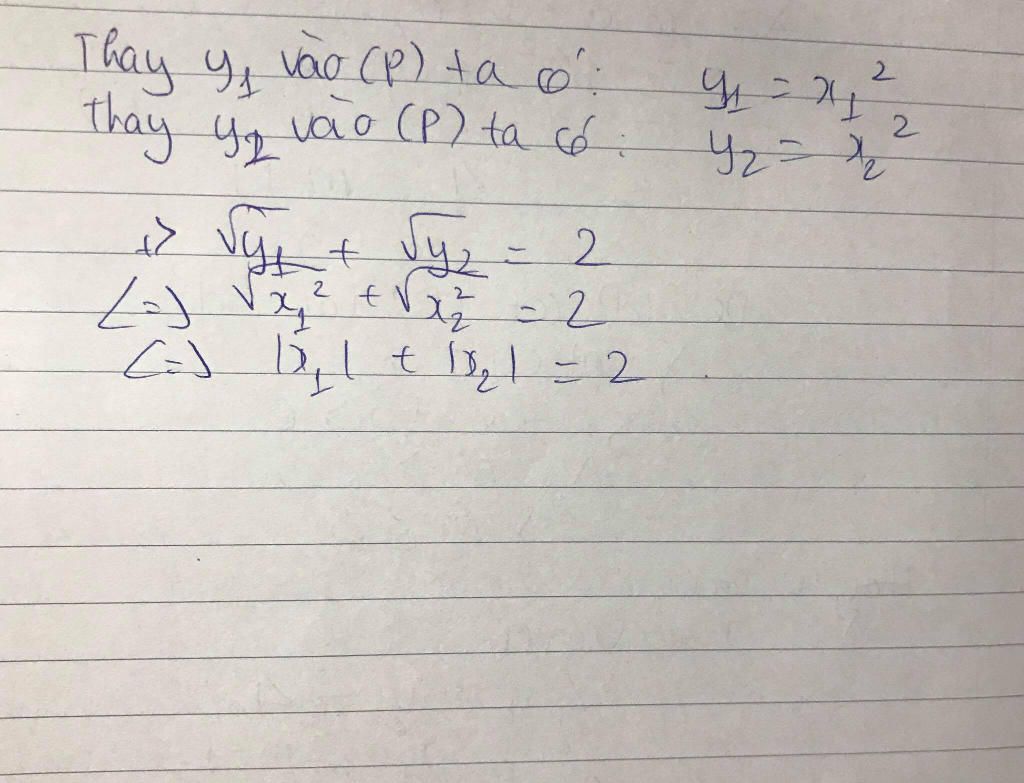 Thay y₁ vào (P) ta có: y₁ = x₁²
Thay y₂ vào (P) ta có: y₂ = x₂²
=> √y₁ + √y₂ = 2
<=> √x₁² + √x₂² = 2
<=> |x₁| + |x₂| = 2